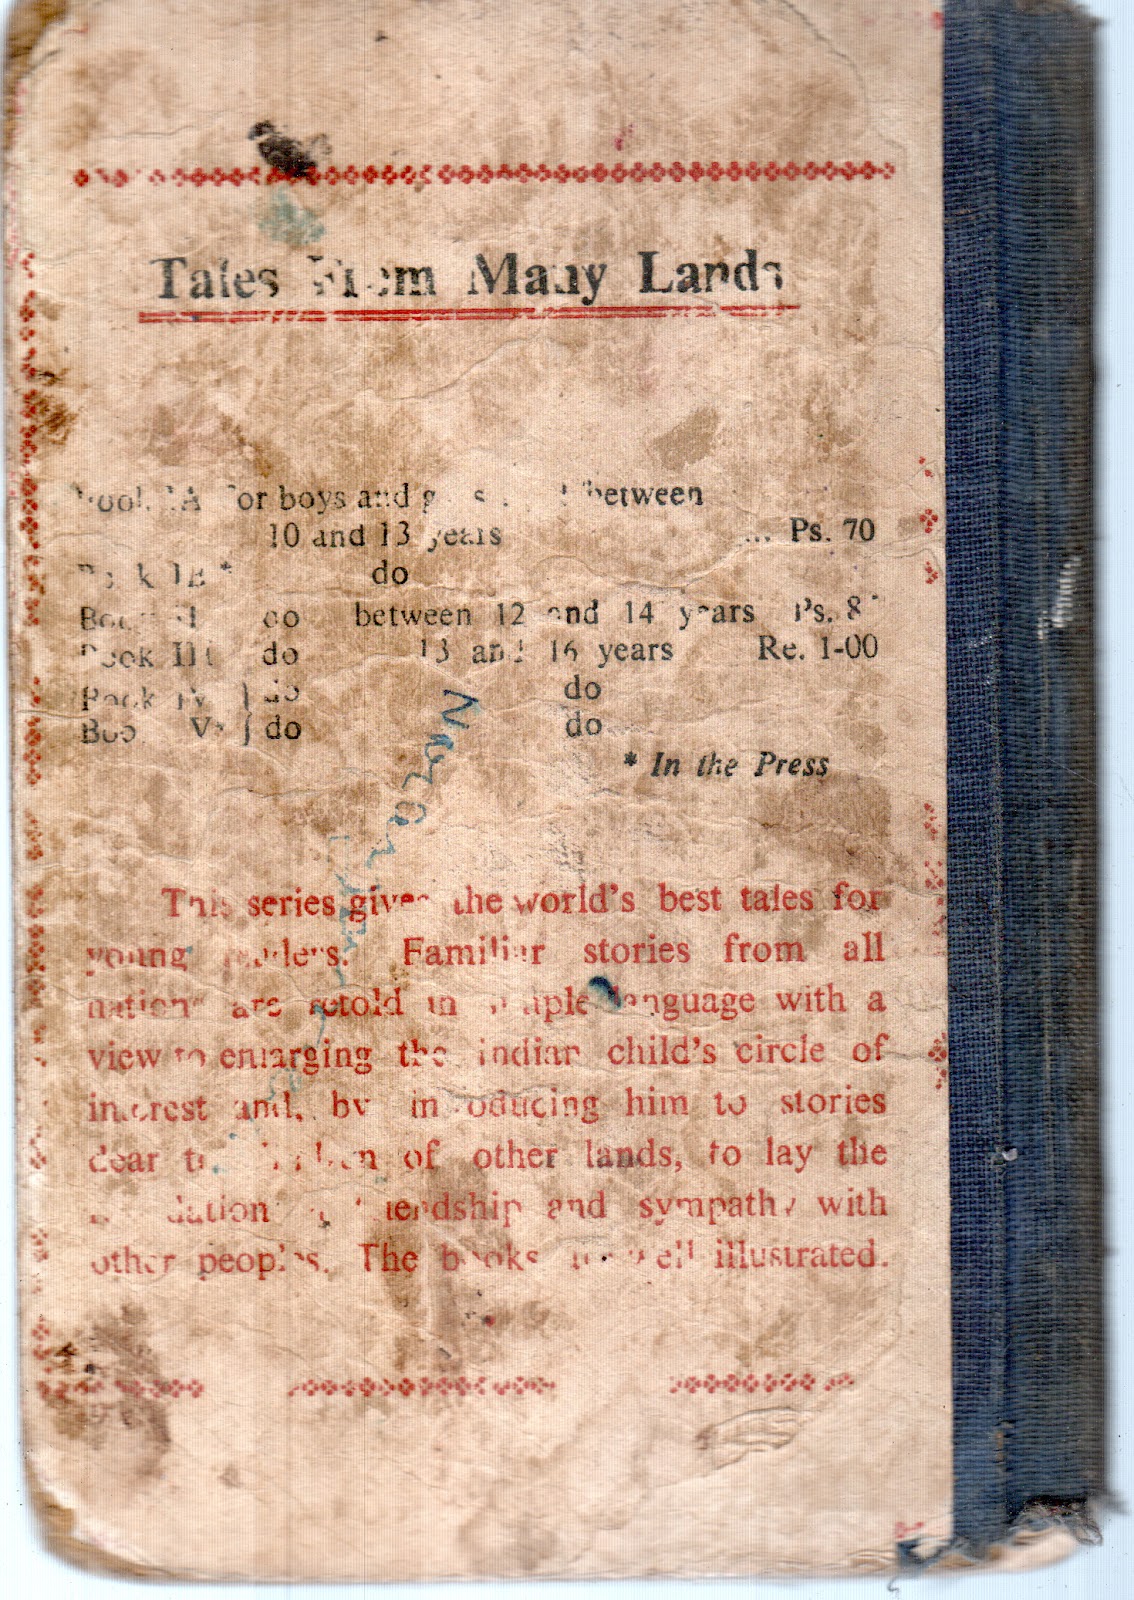 Tales From Many Lands
Book IA for boys and girls between
10 and 13 years ... Ps. 70
Book IB * do
Book II do between 12 and 14 years Ps. 8
Book III do 13 and 16 years Re. 1-00
Book IV } do do
Book V* } do do
* In the Press
Naran
This series gives the world's best tales for
young readers. Familiar stories from all
nations are retold in simple language with a
view to enlarging the Indian child's circle of
interest and, by introducing him to stories
dear to children of other lands, to lay the
foundation of friendship and sympathy with
other peoples. The books are well illustrated.